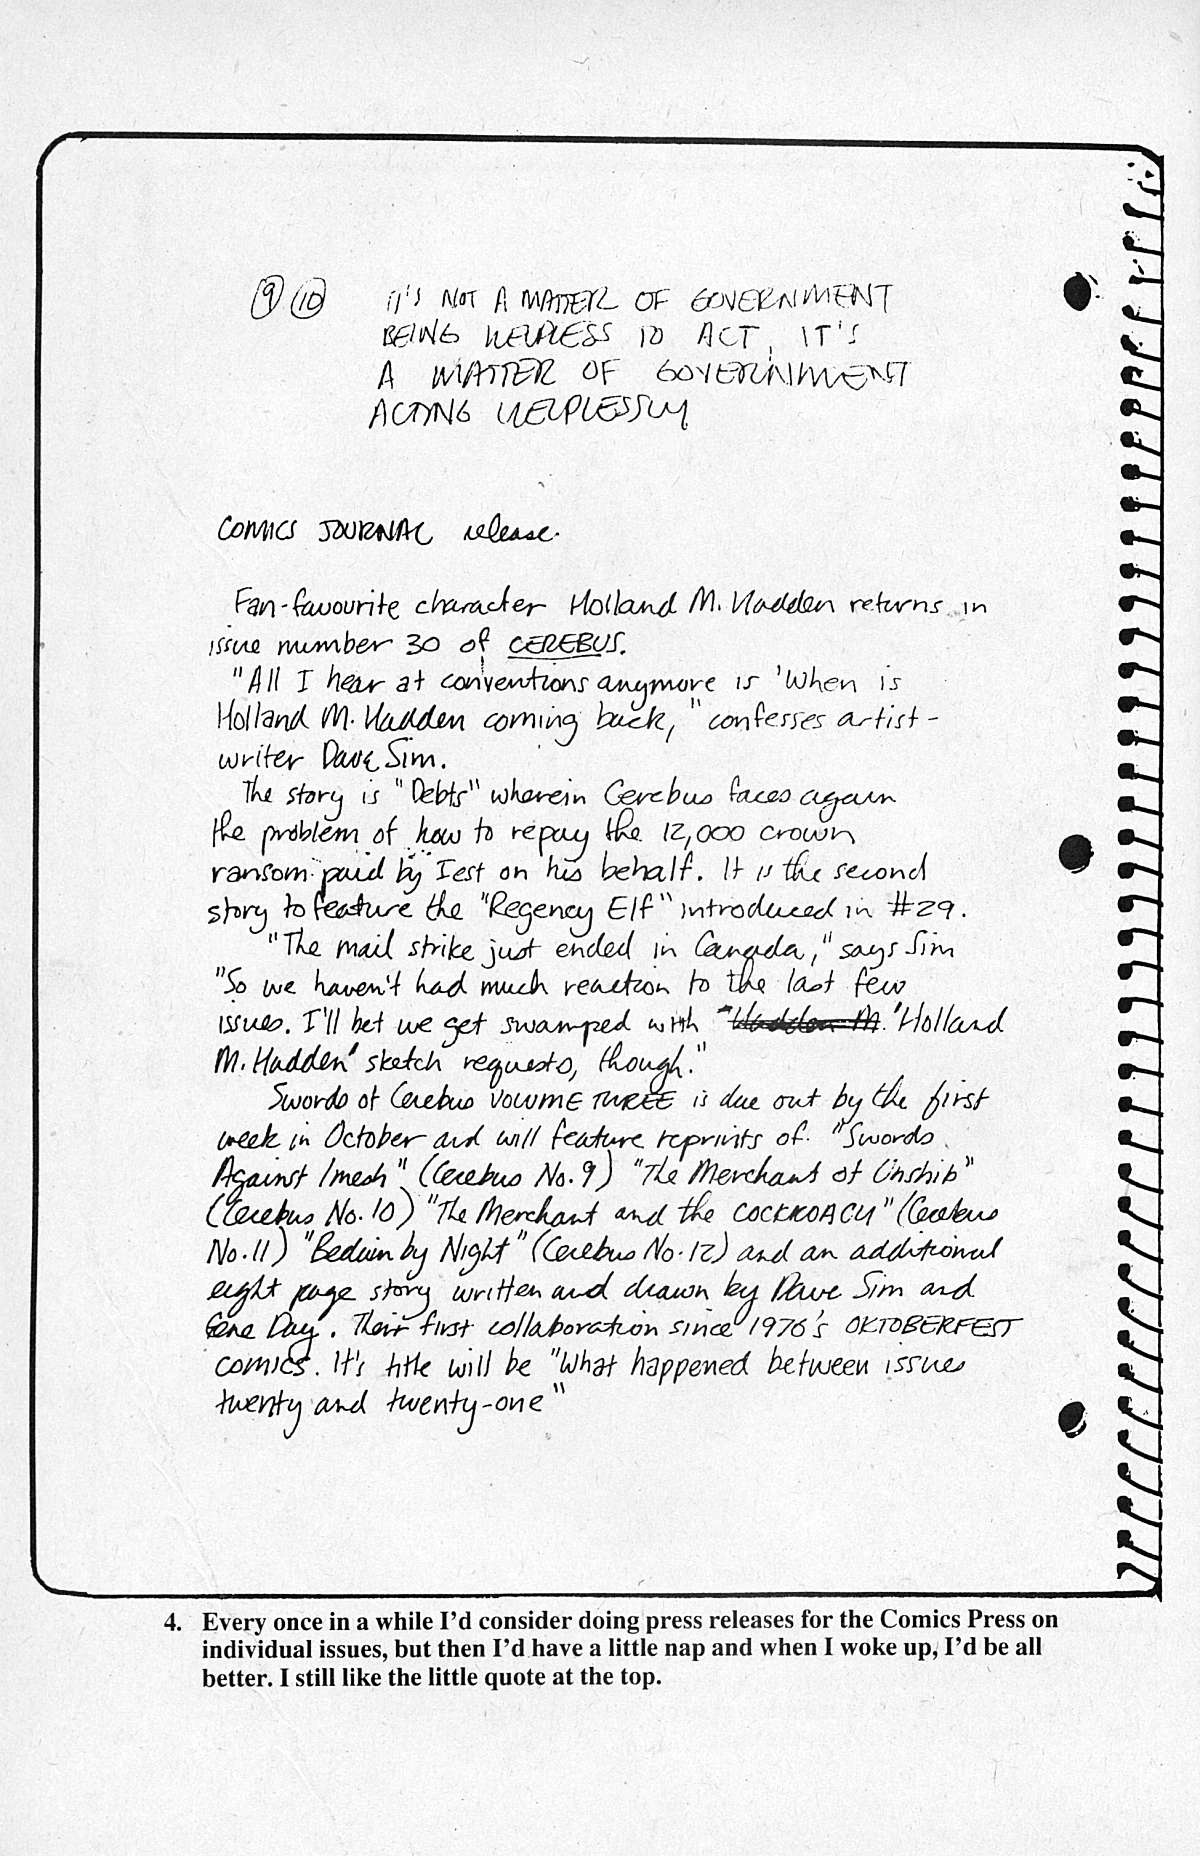 9 10 IT'S NOT A MATTER OF GOVERNMENT
BEING HELPLESS TO ACT, IT'S
A MATTER OF GOVERNMENT
ACTING HELPLESSLY
COMICS JOURNAL release.
Fan-favourite character Holland M. Hadden returns in
issue number 30 of CEREBUS.
"All I hear at conventions anymore is 'When is
Holland M. Hadden coming back," confesses artist-
writer Dave Sim.
The story is "Debts" wherein Cerebus faces again
the problem of how to repay the 12,000 crown
ransom paid by Iest on his behalf. It is the second
story to feature the "Regency Elf" introduced in #29.
"The mail strike just ended in Canada," says Sim
"So we haven't had much reaction to the last few
issues. I'll bet we get swamped with "Hadden M. 'Holland
M. Hadden' sketch requests, though."
Swords of Cerebus VOLUME THREE is due out by the first
week in October and will feature reprints of "Swords
Against Imesh" (Cerebus No. 9) "The Merchant of Unshib"
(Cerebus No. 10) "The Merchant and the COCKROACH" (Cerebus
No. 11) "Beduin by Night" (Cerebus No. 12) and an additional
eight page story written and drawn by Dave Sim and
Gene Day. Their first collaboration since 1976's OKTOBERFEST
comics. It's title will be "What happened between issues
twenty and twenty-one"
4. Every once in a while I'd consider doing press releases for the Comics Press on
individual issues, but then I'd have a little nap and when I woke up, I'd be all
better. I still like the little quote at the top.